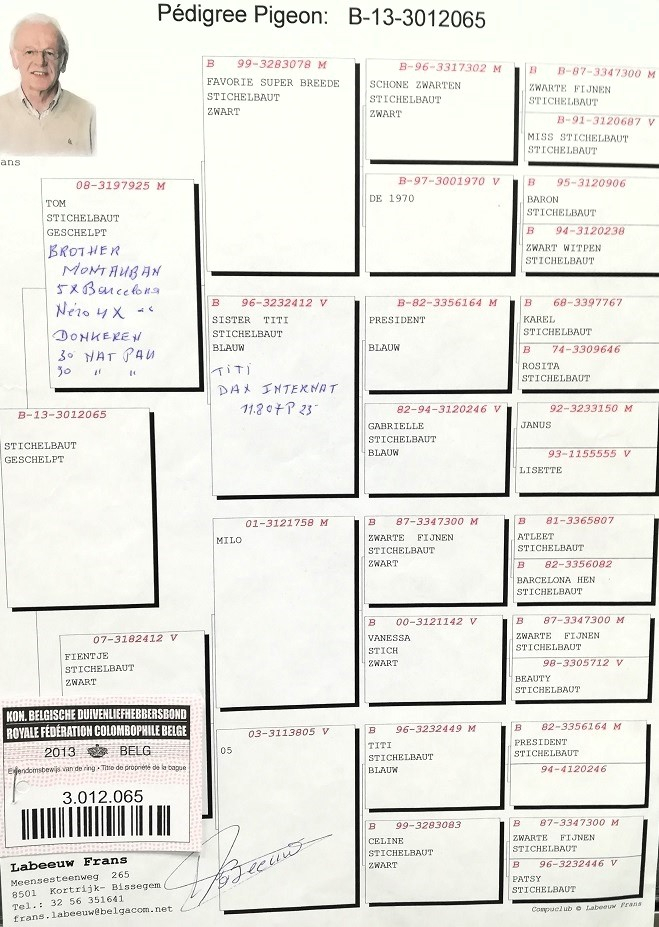 Pédigree Pigeon: B-13-3012065
ans
08-3197925 M
TOM
STICHELBAUT
GESCHELPT
BROTHER
MONTAUBAN
5 X Barcelona
Néro 4 X -"-
DONKEREN
30 NAT PAU
30 " "
B-13-3012065
STICHELBAUT
GESCHELPT
07-3182412 V
FIENTJE
STICHELBAUT
ZWART
B 99-3283078 M
FAVORIE SUPER BREEDE
STICHELBAUT
ZWART
B 96-3232412 V
SISTER TITI
STICHELBAUT
BLAUW
TITI
DAX INTERNAT
11.807 P 25
01-3121758 M
MILO
03-3113805 V
05
B-96-3317302 M
SCHONE ZWARTEN
STICHELBAUT
ZWART
B-97-3001970 V
DE 1970
B-82-3356164 M
PRESIDENT
BLAUW
82-94-3120246 V
GABRIELLE
STICHELBAUT
BLAUW
B 87-3347300 M
ZWARTE FIJNEN
STICHELBAUT
ZWART
B 00-3121142 V
VANESSA
STICH
ZWART
B 96-3232449 M
TITI
STICHELBAUT
BLAUW
B 99-3283083
CELINE
STICHELBAUT
ZWART
B B-87-3347300 M
ZWARTE FIJNEN
STICHELBAUT
B-91-3120687 V
MISS STICHELBAUT
STICHELBAUT
B 95-3120906
BARON
STICHELBAUT
B 94-3120238
ZWART WITPEN
STICHELBAUT
B 68-3397767
KAREL
STICHELBAUT
B 74-3309646
ROSITA
STICHELBAUT
92-3233150 M
JANUS
93-1155555 V
LISETTE
B 81-3365807
ATLEET
STICHELBAUT
B 82-3356082
BARCELONA HEN
STICHELBAUT
B 87-3347300 M
ZWARTE FIJNEN
STICHELBAUT
98-3305712 V
BEAUTY
STICHELBAUT
B 82-3356164 M
PRESIDENT
STICHELBAUT
94-4120246
B 87-3347300 M
ZWARTE FIJNEN
STICHELBAUT
B 96-3232446 V
PATSY
STICHELBAUT
KON. BELGISCHE DUIVENLIEFHEBBERSBOND
ROYALE FÉDÉRATION COLOMBOPHILE BELGE
2013 BELG
Eigendomsbewijs van de ring • Titre de propriété de la bague
3.012.065
Labeeuw Frans
Meensesteenweg 265
8501 Kortrijk- Bissegem
Tel.: 32 56 351641
frans.labeeuw@belgacom.net
Labeeuw
Compuclub © Labeeuw Frans